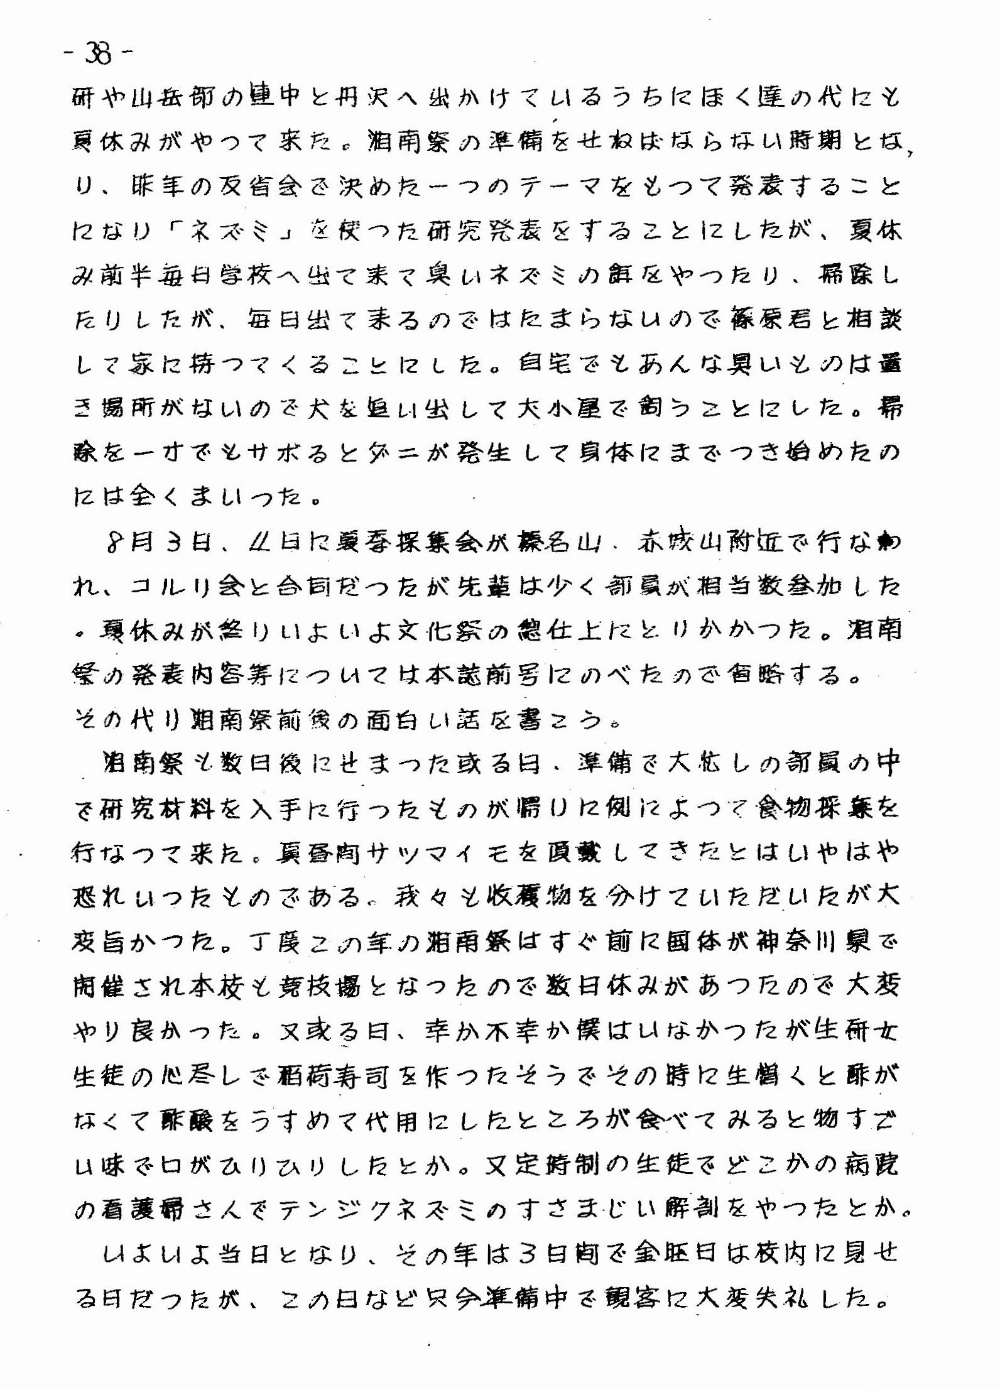 - 38 -
研や山岳部の連中と丹沢へ出かけているうちにぼく達の代にも
夏休みがやつて来た。湘南祭の準備をせねばならない時期とな
り、昨年の反省会で決めた一つのテーマをもつて発表すること
になり「ネズミ」を使つた研究発表をすることにしたが、夏休
み前半毎日学校へ出て来て臭いネズミの餌をやつたり、掃除し
たりしたが、毎日出て来るのではたまらないので篠原君と相談
して家に持つてくることにした。自宅でもあんな臭いものは置
き場所がないので犬を追い出して犬小屋で飼うことにした。掃
除を一寸でもサボるとダニが発生して身体にまでつき始めたの
には全くまいつた。
8月3日、4日に夏季採集会が榛名山、赤城山附近で行なわ
れ、コルリ会と合同だつたが先輩は少く部員が相当数参加した
。夏休みが終りいよいよ文化祭の総仕上にとりかかつた。湘南
祭の発表内容等については本誌前号にのべたので省略する。
その代り湘南祭前後の面白い話を書こう。
湘南祭も数日後にせまつた或る日、準備で大忙しの部員の中
で研究材料を入手に行つたものが帰りに例によつて食物採集を
行なつて来た。真昼間サツマイモを頂戴してきたとはいやはや
恐れいつたものである。我々も収穫物を分けていただいたが大
変旨かつた。丁度この年の湘南祭はすぐ前に国体が神奈川県で
開催され本校も競技場となつたので数日休みがあつたので大変
やり良かつた。又或る日、幸か不幸か僕はいなかつたが生研女
生徒の心尽しで稲荷寿司を作つたそうでその時に生憎くと酢が
なくて酢酸をうすめて代用にしたところが食べてみると物すご
い味で口がひりひりしたとか。又定時制の生徒でどこかの病院
の看護婦さんでテンジクネズミのすさまじい解剖をやつたとか。
いよいよ当日となり、その年は3日間で金旺日は校内に見せ
る日だつたが、この日など只今準備中で観客に大変失礼した。